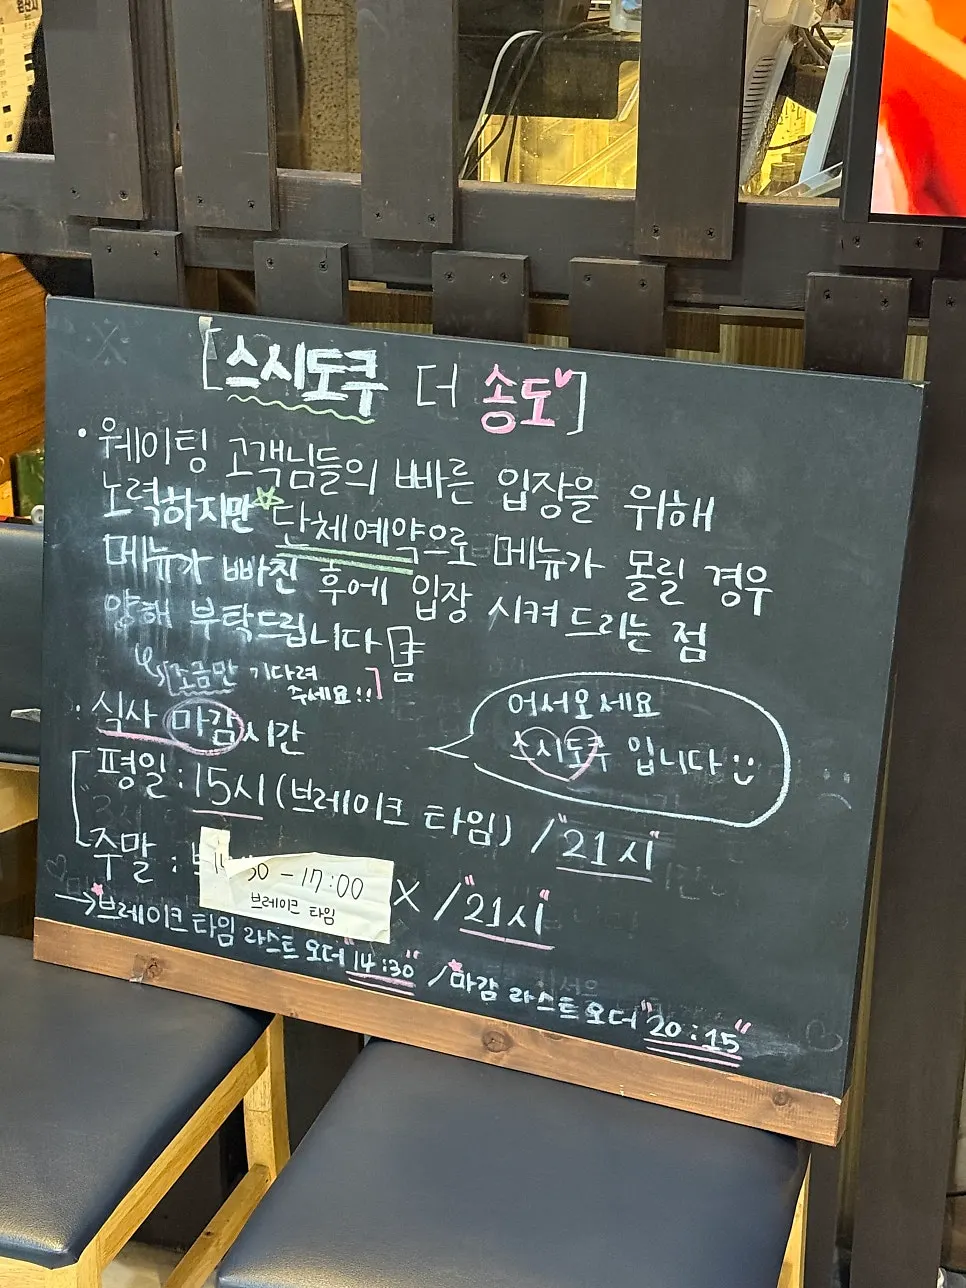 [스시도쿠 더 송도]
· 웨이팅 고객님들의 빠른 입장을 위해
노력하지만 단체예약으로 메뉴가 몰릴 경우
메뉴가 빠진 후에 입장 시켜 드리는 점
양해 부탁드립니다
[조금만 기다려
주세요!!]
· 식사 마감시간
어서오세요
스시도쿠 입니다
평일 : 15시 (브레이크 타임) / "21시"
주말 : X / "21시"
30 - 17:00
브레이크 타임
→ 브레이크 타임 라스트 오더 "14:30" / 마감 라스트 오더 "20:15"